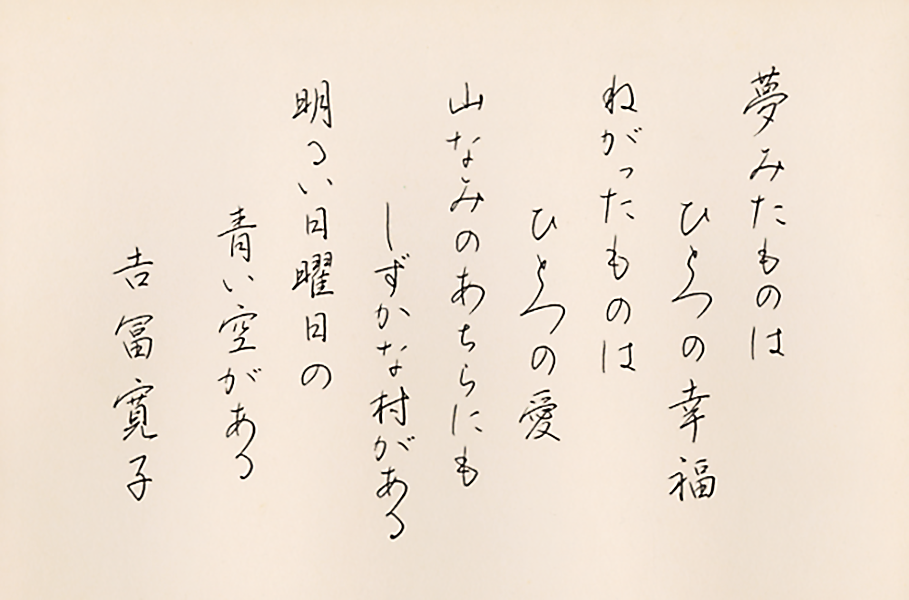 夢みたものは
ひとつの幸福
ねがったものは
ひとつの愛
山なみのあちらにも
しずかな村がある
明るい日曜日の
青い空がある
吉冨寛子